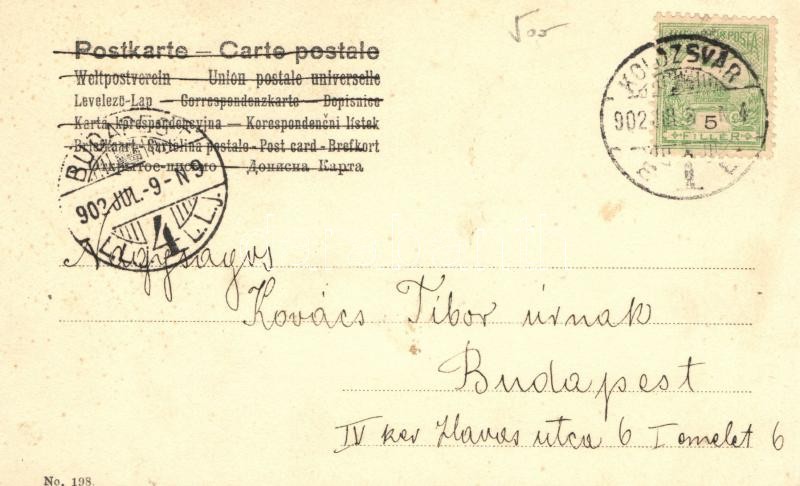 5oo
Postkarte – Carte postale
Weltpostverein – Union postale universelle
Levelező-Lap – Correspondenzkarte – Dopisnice
Karta korespondencyjna – Korespondenční lístek
Briefkaart – Cartolina postale – Post card – Brefkort
Открытое письмо – Дописна Карта
KOLOZSVÁR
902 JUL
5
FILLÉR
POSTA
BUDAPEST
902 JUL.-9-N9
4
Nagyságos
Kovács Tibor úrnak
Budapest
IV ker Havas utca 6 I emelet 6
No. 198.